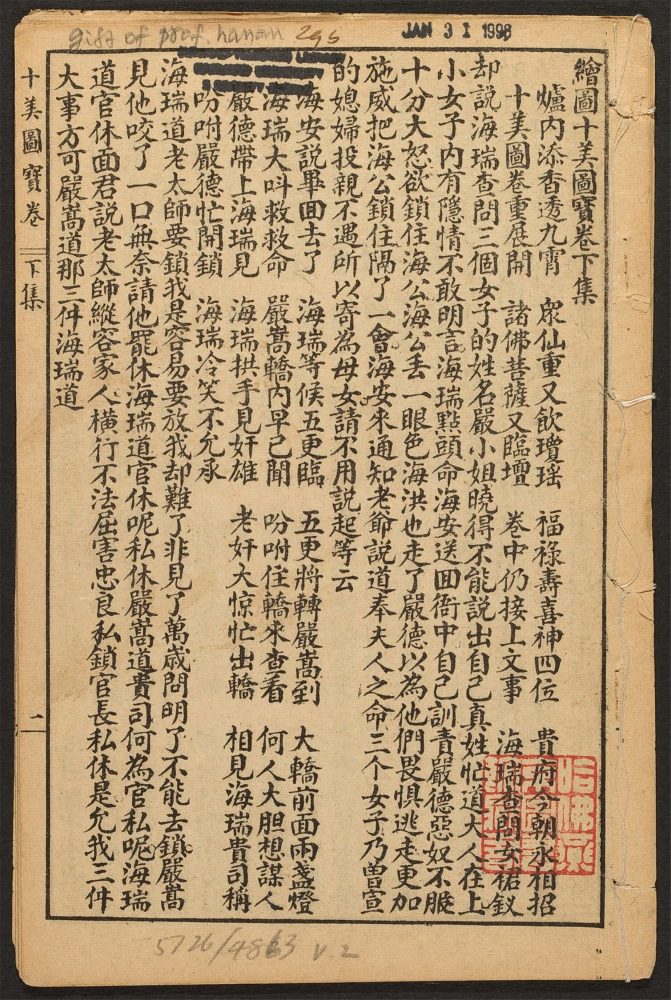 gift of prof. hanan
295
JAN 31 1998
繪圖十美圖寶卷下集
爐內添香透九霄 眾仙重又飲瓊瑤 福祿壽喜神四位 貴府今朝永相招
十美圖卷重展開 諸佛菩薩又臨壇 卷中仍接上文事 海瑞查問女裙釵
却説海瑞查問三個女子的姓名嚴小姐曉得不能説出自己真姓忙道大人在上
小女子內有隱情不敢明言海瑞點頭命海安送回衙中自己訓責嚴德惡奴不服
十分大怒欲鎖住海公海公丢一眼色海洪也走了嚴德以為他們畏惧逃走更加
施威把海公鎖住隔了一會海安來通知老爺説道奉夫人之命三个女子乃曾宣
的媳婦投親不遇所以寄為母女請不用説起等云
海安説畢回去了 海瑞等候五更臨 五更將轉嚴嵩到 大轎前面兩盞燈
海瑞大叫救救命 嚴嵩轎內早已聞 吩咐住轎來查看 何人大胆想謀人
嚴德帶上海瑞見 海瑞拱手見奸雄 老奸大惊忙出轎 相見海瑞貴司稱
吩咐嚴德忙開鎖 海瑞冷笑不允承
海瑞道老太師要鎖我是容易要放我却難了非見了萬歲問明了不能去鎖嚴嵩
見他咬了一口無奈請他罷休海瑞道官休呢私休嚴嵩道貴司何為官私呢海瑞
道官休面君説老太師縱容家人橫行不法屈害忠良私鎖官長私休是允我三件
大事方可嚴嵩道那三件海瑞道
十美圖寶卷 下集 二
5726/4863 v.2